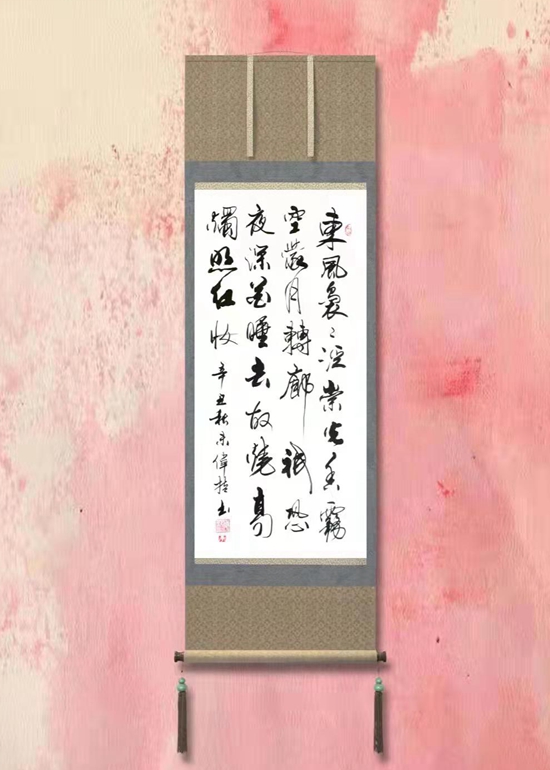 東風裊〻泛崇光香霧
空濛月轉廊祇恐
夜深花睡去故燒高
燭照紅妝 辛丑秋朱偉書